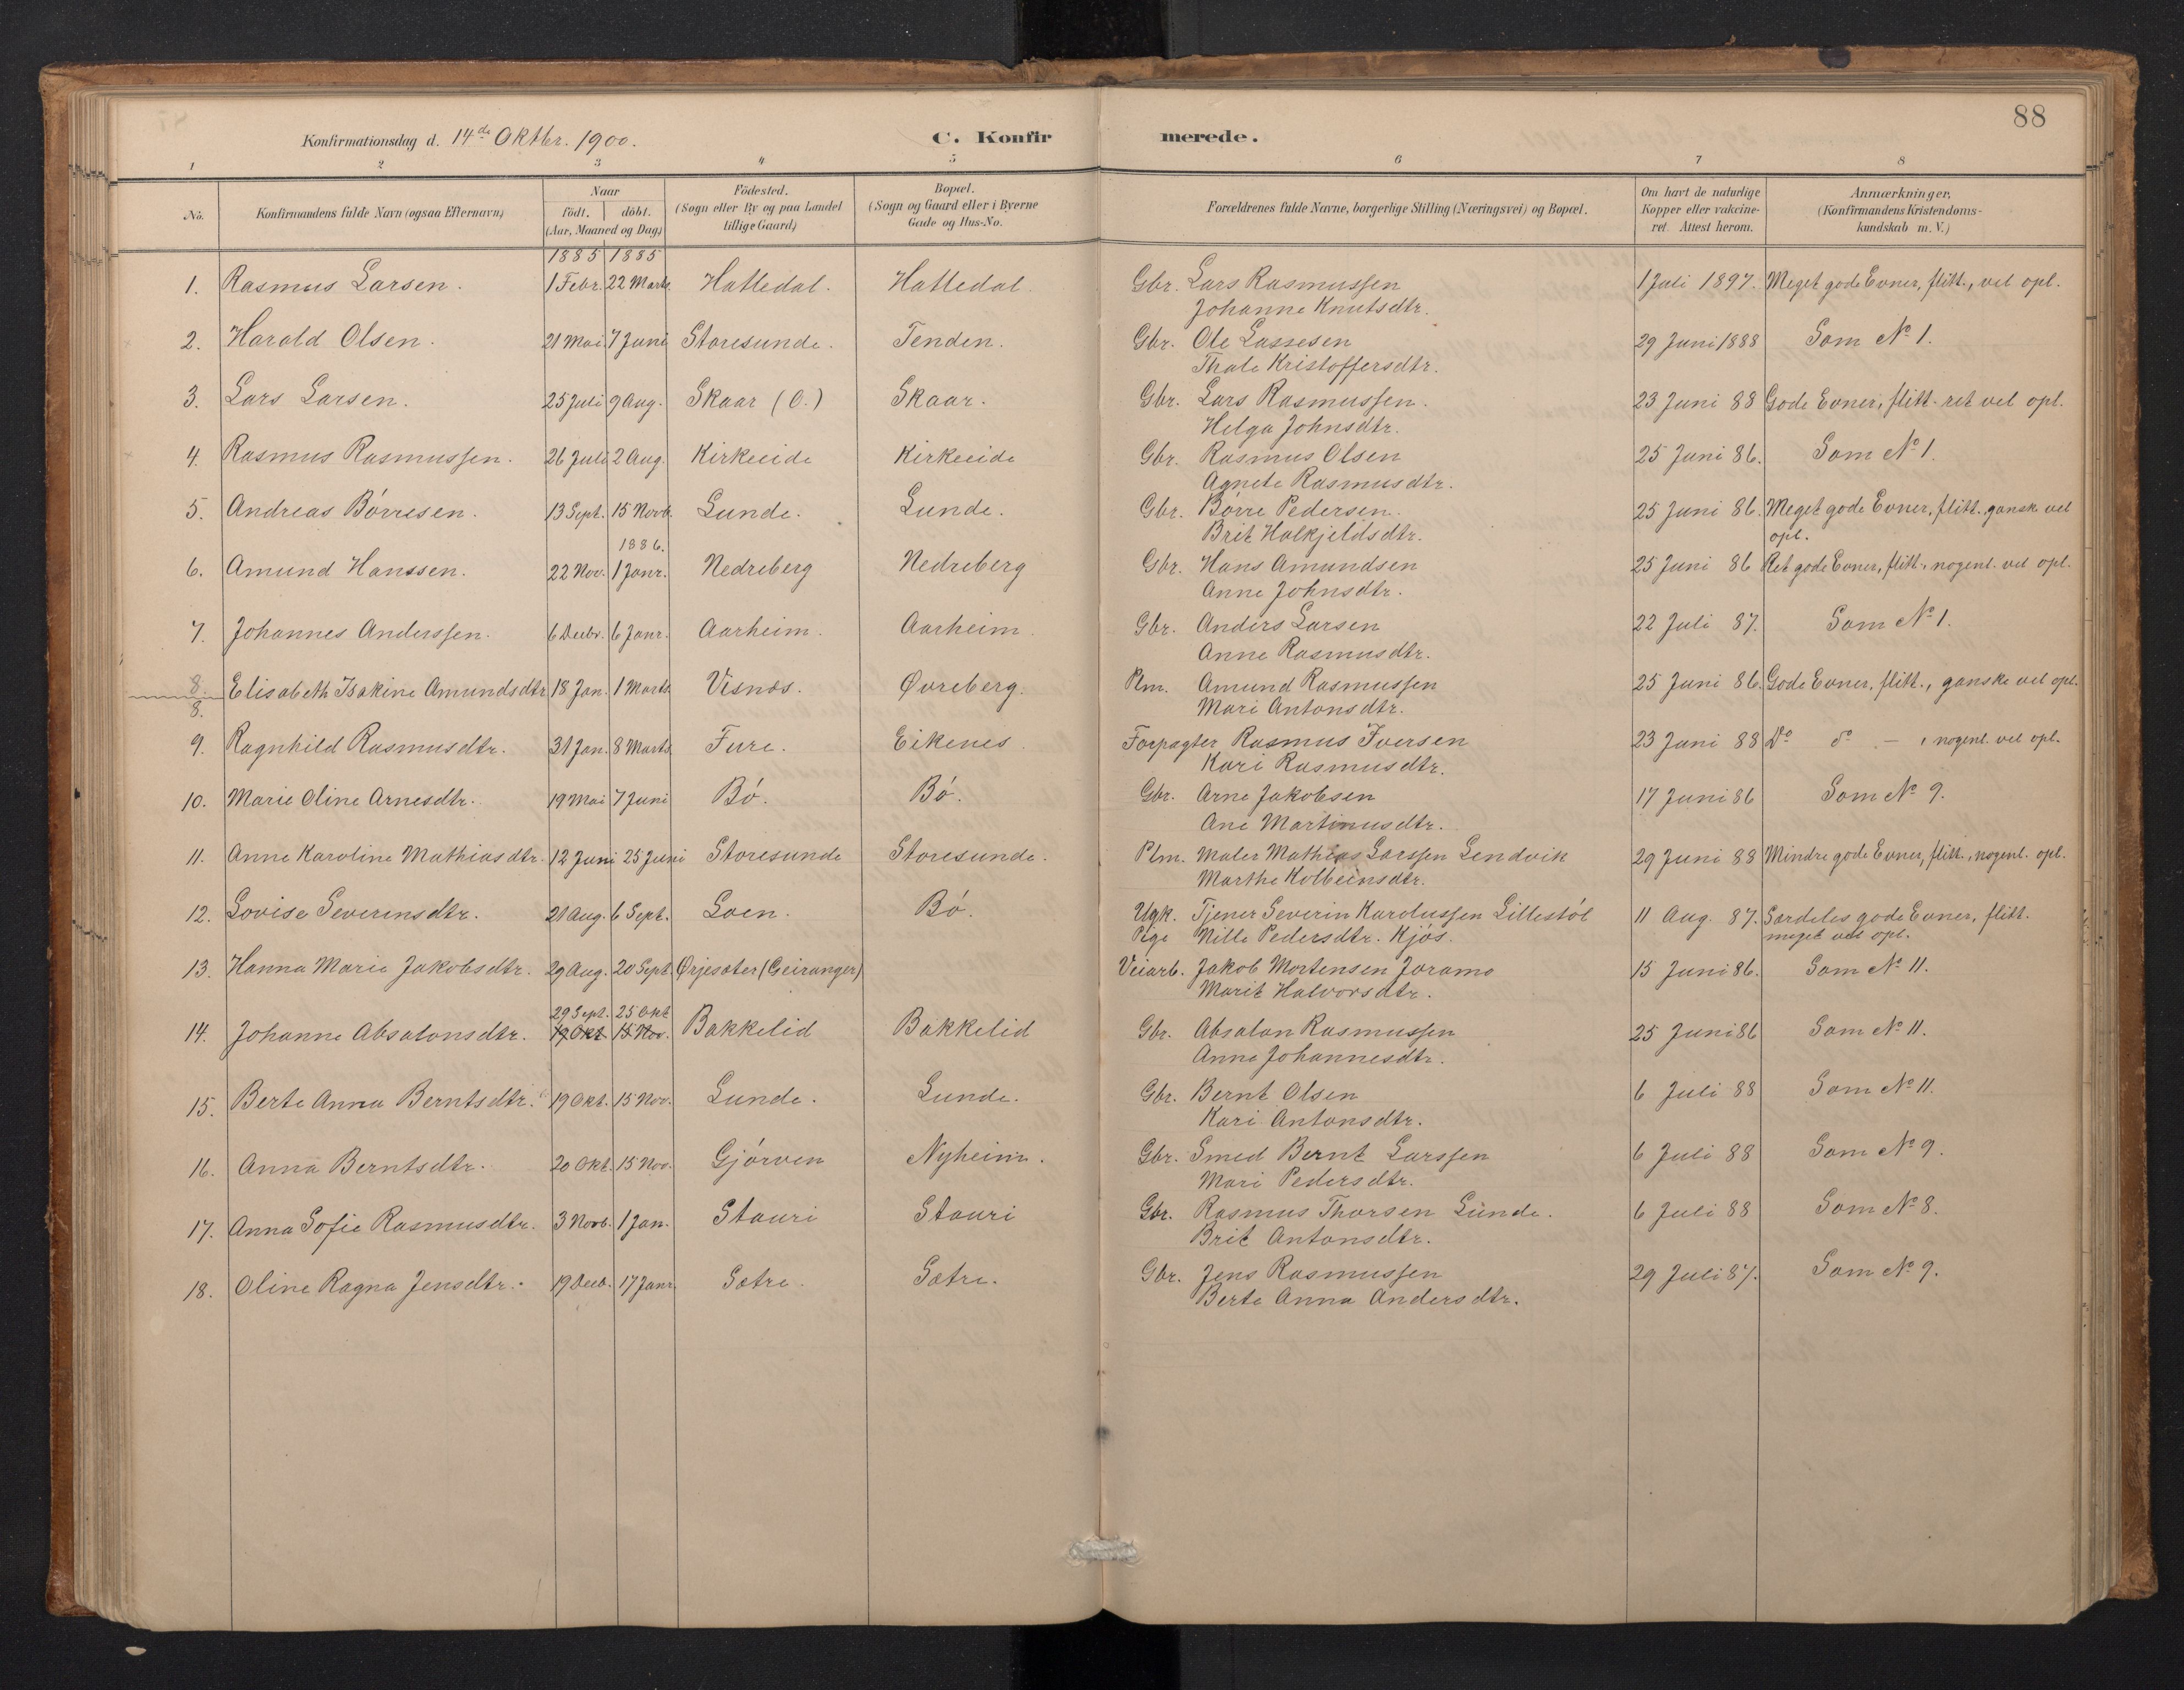 88
Konfirmationsdag d. 14de Oktbr. 1900.
C. Konfirmerede.
1 2 3 4 5 6 7 8
No.
Konfirmandens fulde Navn (ogsaa Efternavn)
Naar
födt. | döbt.
(Aar, Maaned og Dag)
Födested.
(Sogn eller By og paa Landet
tillige Gaard)
Bopæl.
(Sogn og Gaard eller i Byerne
Gade og Hus-No.
Forældrenes fulde Navne, borgerlige Stilling (Næringsvei) og Bopæl.
Om havt de naturlige
Kopper eller vakcine-
ret. Attest herom.
Anmærkninger,
(Konfirmandens Kristendoms-
kundskab m. V.)
1885 1885
1. Rasmus Larsen. 1 Febr. 22 Marts Hatledal. Hatledal. Gbr. Lars Rasmussen 1 Juli 1897. Meget gode Evner, flitt., vel opl.
Johanne Knutsdtr.
2. Harald Olsen. 21 Mai 7 Juni Storesunde. Tenden. Gbr. Ole Lassesen 29 Juni 1888 Som No 1.
Thale Kristoffersdtr.
3. Lars Larsen. 25 Juli 9 Aug. Skaar (O.) Skaar. Gbr. Lars Rasmussen. 23 Juni 88 Gode Evner, flitt. ret vel opl.
Helga Johnsdtr.
4. Rasmus Rasmussen. 26 Juli 2 Aug. Kirkeeide Kirkeeide Gbr. Rasmus Olsen 25 Juni 86. Som No 1.
Agnete Rasmusdtr.
5. Andreas Børresen. 13 Sept. 15 Novb. Lunde. Lunde. Gbr. Børre Pedersen. 25 Juni 86. Meget gode Evner, flitt. ganske vel
Brit Halkjeldsdtr. opl.
1886.
6. Amund Hanssen. 22 Nov. 1 Janr. Nedreberg Nedreberg Gbr. Hans Amundsen 25 Juni 86 Ret gode Evner, flitt., nogenl. vel opl.
Anne Johnsdtr.
7. Johannes Anderssen. 6 Decbr. 6 Janr. Aarheim. Aarheim. Gbr. Anders Larsen 22 Juli 87. Som No 1.
Anne Rasmusdtr.
8. Elisabeth Isakine Amundsdtr 18 Jan. 1 Marts Visnæs. Øvreberg. Plm. Amund Rasmussen 25 Juni 86. Gode Evner, flitt., ganske vel opl.
8. Mari Antonsdtr.
9. Ragnhild Rasmusdtr. 31 Jan. 8 Marts Fure. Eikenes. Forpagter Rasmus Iversen 23 Juni 88 Do do - , nogenl. vel opl.
Kari Rasmusdtr.
10. Marie Oline Arnesdtr. 19 Mai 7 Juni Bø. Bø. Gbr. Arne Jakobsen 17 Juni 86 Som No 9.
Ane Martinusdtr.
11. Anne Karoline Mathiasdtr. 12 Juni 25 Juni Storesunde Storesunde. Plm. Maler Mathias Larssen Lendvik 29 Juni 88 Mindre gode Evner, flitt., nogenl. opl.
Marthe Kolbeinsdtr.
12. Lovise Severinsdtr. 21 Aug. 6 Sept. Loen. Bø. Ugk. Tjener Severin Karolussen Lillestøl 11 Aug. 87. Særdeles gode Evner, flitt.
Pige Nille Pedersdtr. Kjøs. meget vel opl.
13. Hanna Marie Jakobsdtr. 29 Aug. 20 Sept Ørjesæter (Geiranger) Veiarb. Jakob Mortensen Joramo 15 Juni 86. Som No 11.
Marit Halvorsdtr.
29 Sept. 25 Okt
14. Johanne Absalonsdtr. 19 Okt 15 Nov. Bakkelid Bakkelid Gbr. Absalon Rasmussen 25 Juni 86 Som No 11.
Anne Johannesdtr.
15. Berte Anna Berntsdtr. 19 Okt. 15 Nov. Lunde. Lunde. Gbr. Bernt Olsen 6 Juli 88 Som No 11.
Kari Antonsdtr.
16. Anna Berntsdtr. 20 Okt. 15 Nov. Gjørven Nyheim. Gbr. Smed Bernt Larssen 6 Juli 88 Som No 9.
Mari Pedersdtr.
17. Anna Sofie Rasmusdtr. 3 Novb. 1 Jan. Stauri Stauri Gbr. Rasmus Thorsen Lunde. 6 Juli 88 Som No 8.
Brit Antonsdtr.
18. Oline Ragna Jensdtr. 19 Decb. 17 Janr. Sætre. Sætre. Gbr. Jens Rasmussen 29 Juli 87. Som No 9.
Berte Anna Andersdtr.